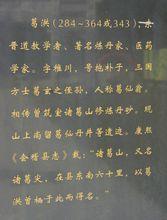 葛洪(284~364或343),东
晋道教学者、著名炼丹家、医药
学家。字稚川,号抱朴子,三国
方士葛玄之侄孙,人称葛仙翁。
相传曾筑室诸葛山修炼丹砂。现
山上尚留葛仙丹井等遗迹。康熙
《会稽县志》载:“诸葛山,又名
诸葛尖,在县东南六十里,以葛
洪曾栖于此而得名。”